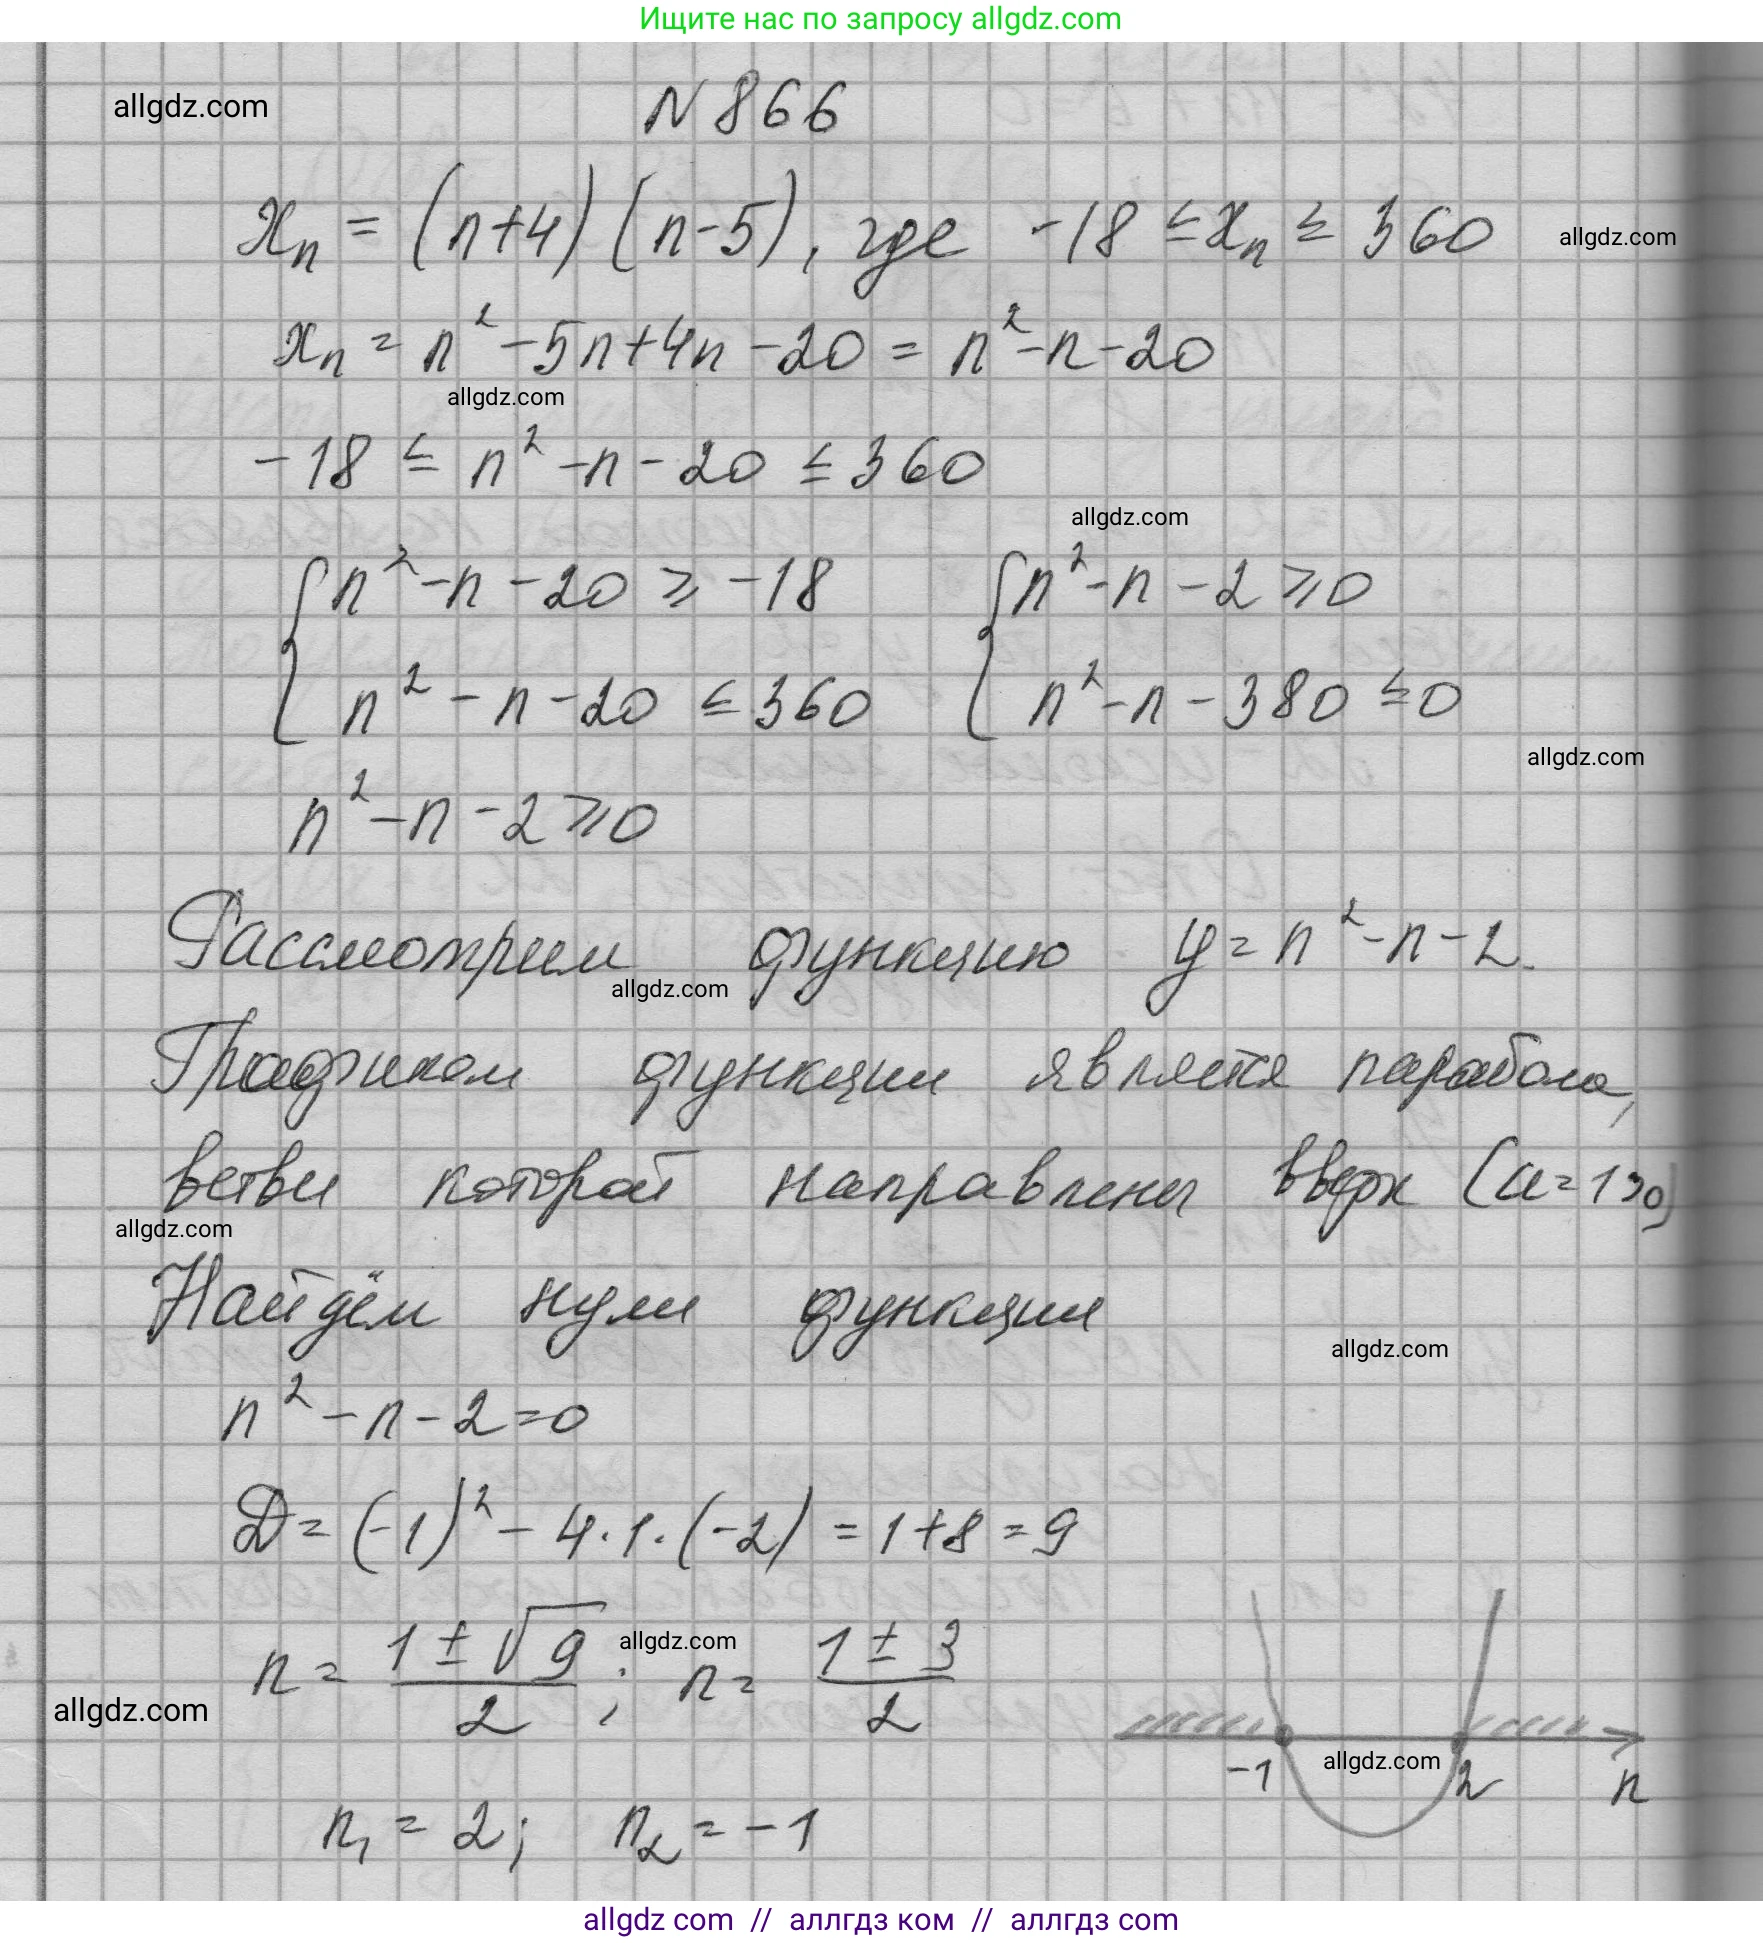 Ищите нас по запросу allgdz.com
allgdz.com
N 866
xₙ = (n+4)(n-5), где -18 ≤ xₙ ≤ 360
allgdz.com
xₙ = n² - 5n + 4n - 20 = n² - n - 20
allgdz.com
-18 ≤ n² - n - 20 ≤ 360
allgdz.com
{ n² - n - 20 ≥ -18 { n² - n - 2 ≥ 0
n² - n - 20 ≤ 360 n² - n - 380 ≤ 0
allgdz.com
n² - n - 2 ≥ 0
Рассмотрим функцию y = n² - n - 2.
allgdz.com
Графиком функции является парабола,
ветви которой направлены вверх (a = 1 > 0)
allgdz.com
Найдём нули функции
allgdz.com
n² - n - 2 = 0
D = (-1)² - 4·1·(-2) = 1 + 8 = 9
n = (1 ± √9)/2 ; n = (1 ± 3)/2
allgdz.com
allgdz.com
-1 allgdz.com 2 n
n₁ = 2; n₂ = -1
allgdz com // аллгдз ком // аллгдз com